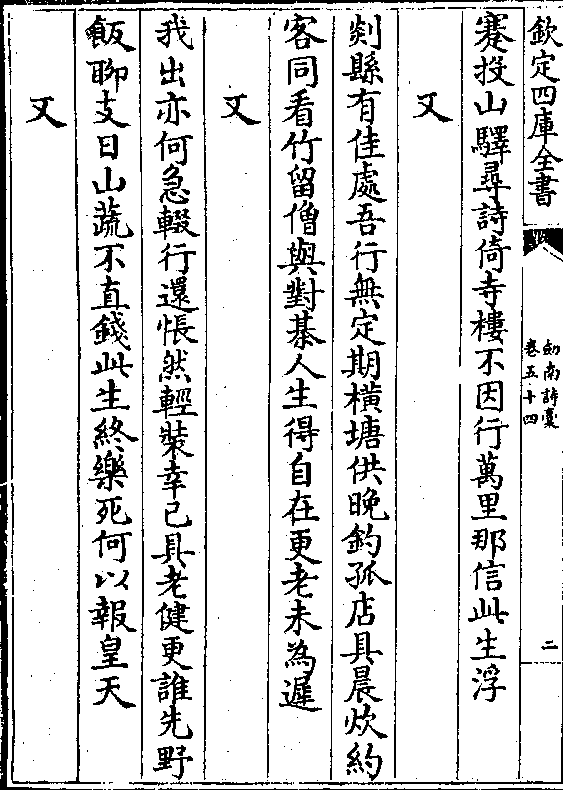 欽定四庫全書
劎南詩稾
卷五十四
二
蹇投山驛尋詩倚寺樓不因行萬里那信此生浮
又
剡縣有佳處吾行無定期横塘供晚釣孤店具晨炊約
客同看竹留僧與對棊人生得自在更老未為遲
又
我出亦何急輟行還悵然輕裝幸已具老健更誰先野
飯聊支日山蔬不直錢此生終樂死何以報皇天
又